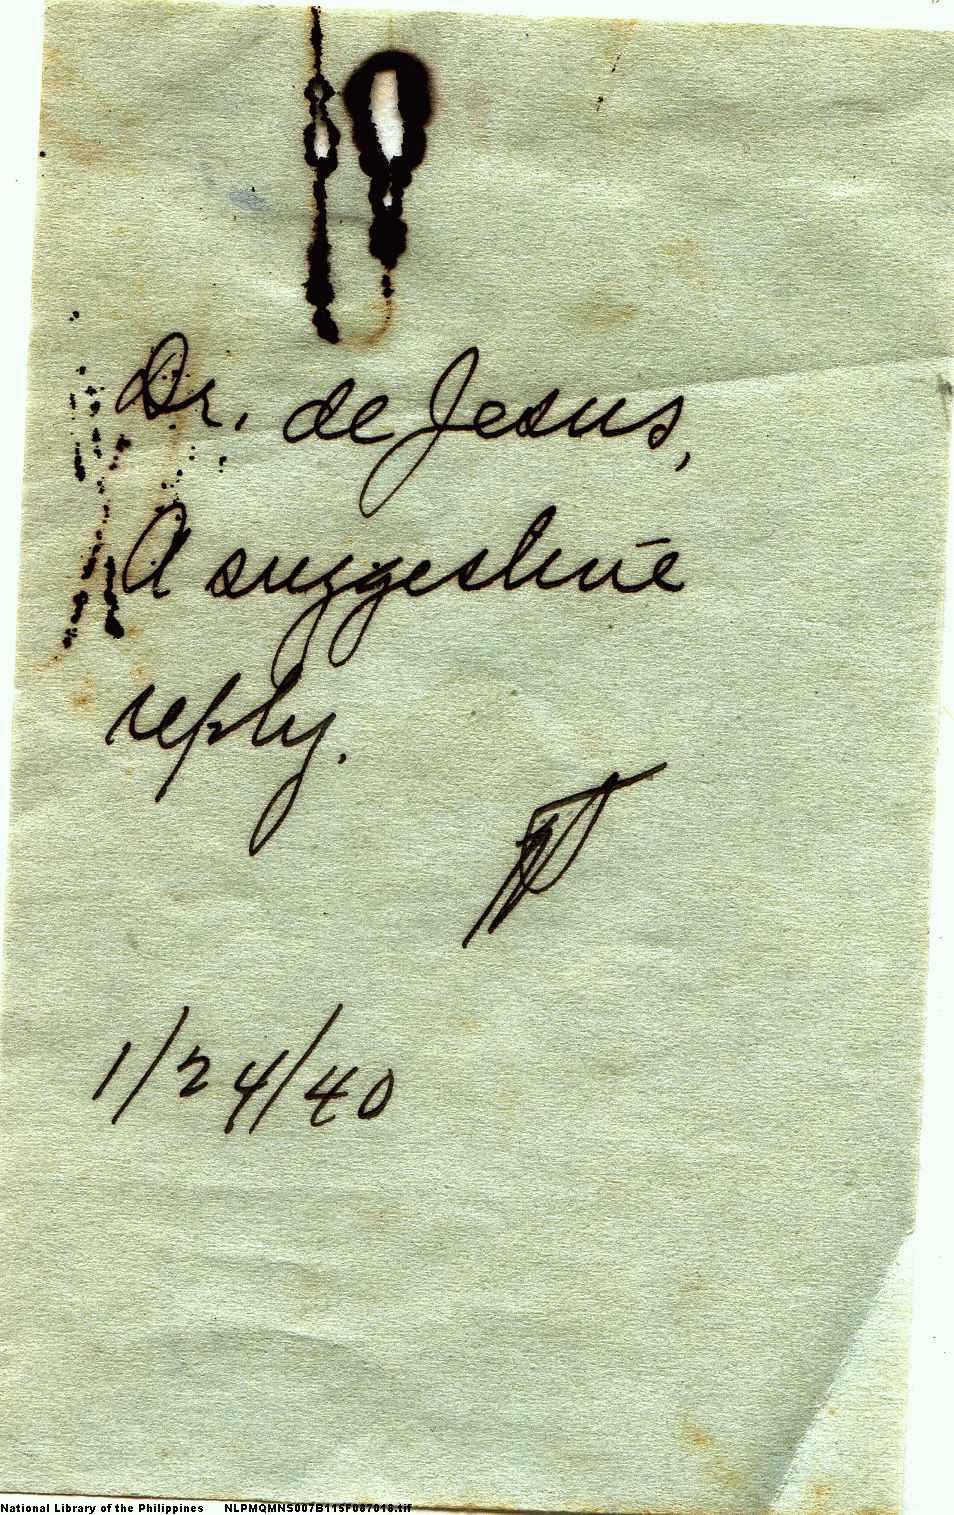 Dr. de Jesus,
A suggestive
reply.
1/24/40
National Library of the Philippines NLPMQMNS007B115F087018.tif